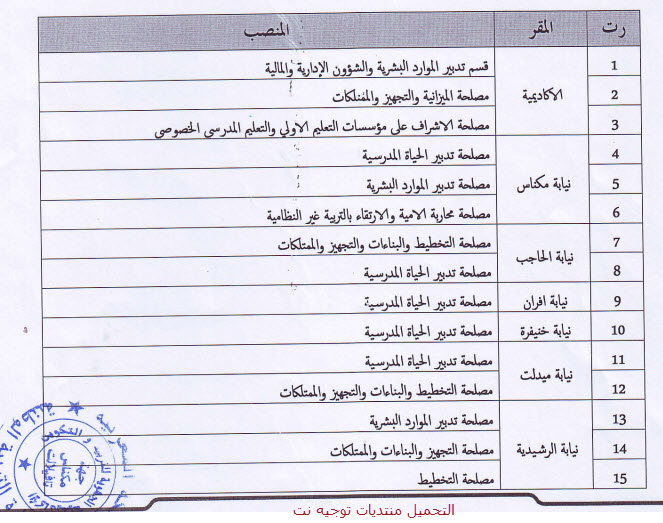 رت المقر المنصب
1 الاكاديمية قسم تدبير الموارد البشرية والشؤون الإدارية والمالية
2 مصلحة الميزانية والتجهيز والممتلكات
3 مصلحة الاشراف على مؤسسات التعليم الاولي والتعليم المدرسي الخصوصي
4 نيابة مكناس مصلحة تدبير الحياة المدرسية
5 مصلحة تدبير الموارد البشرية
6 مصلحة محاربة الامية والارتقاء بالتربية غير النظامية
7 نيابة الحاجب مصلحة التخطيط والبناءات والتجهيز والممتلكات
8 مصلحة تدبير الحياة المدرسية
9 نيابة افران مصلحة تدبير الحياة المدرسية
10 نيابة خنيفرة مصلحة تدبير الحياة المدرسية
11 نيابة ميدلت مصلحة تدبير الحياة المدرسية
12 مصلحة التخطيط والبناءات والتجهيز والممتلكات
13 نيابة الرشيدية مصلحة تدبير الموارد البشرية
14 مصلحة التجهيز والبناءات والممتلكات
15 مصلحة التخطيط
جهة
مكناس
تافيلالت
التحميل منتديات توجيه نت